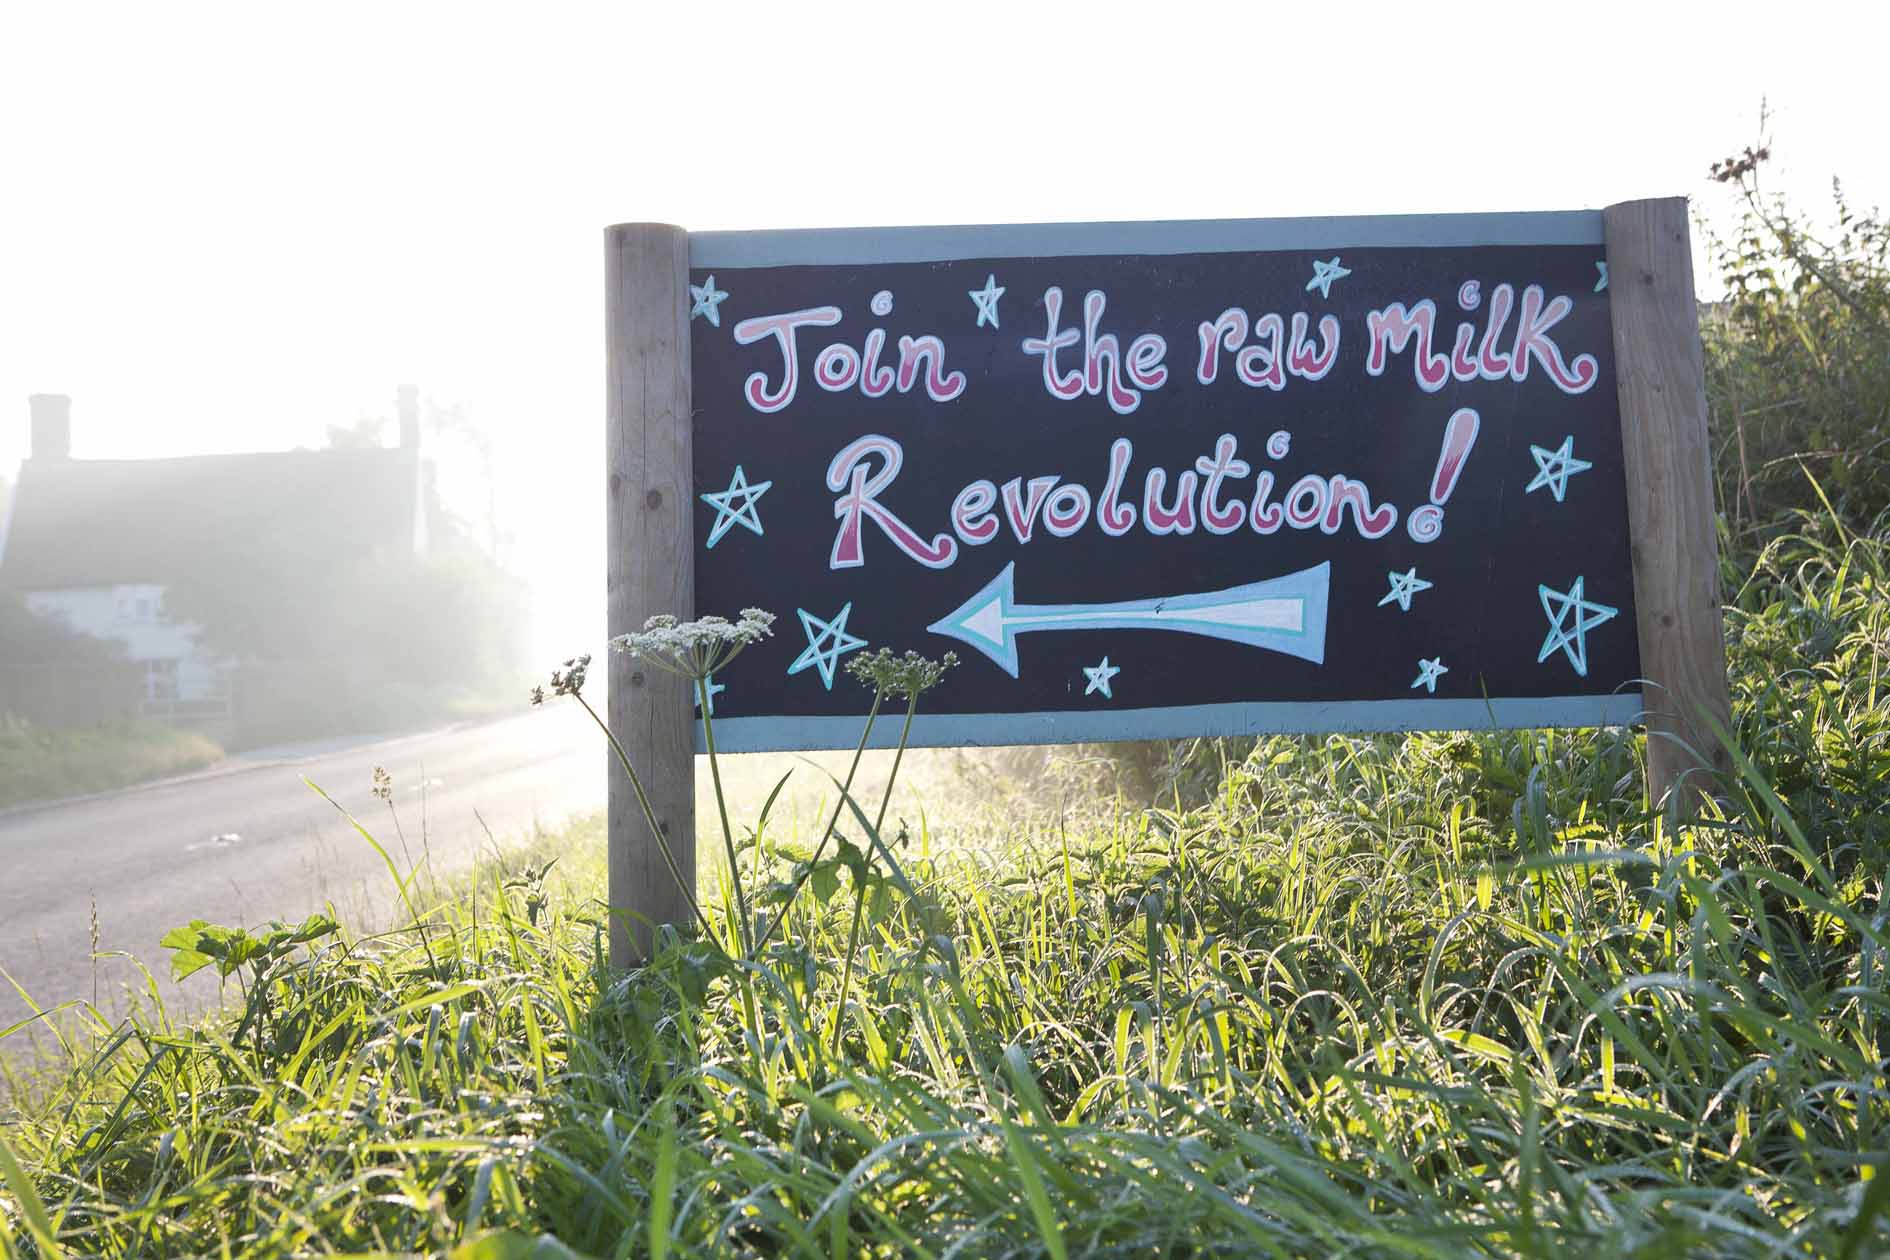 Join the raw milk
Revolution!